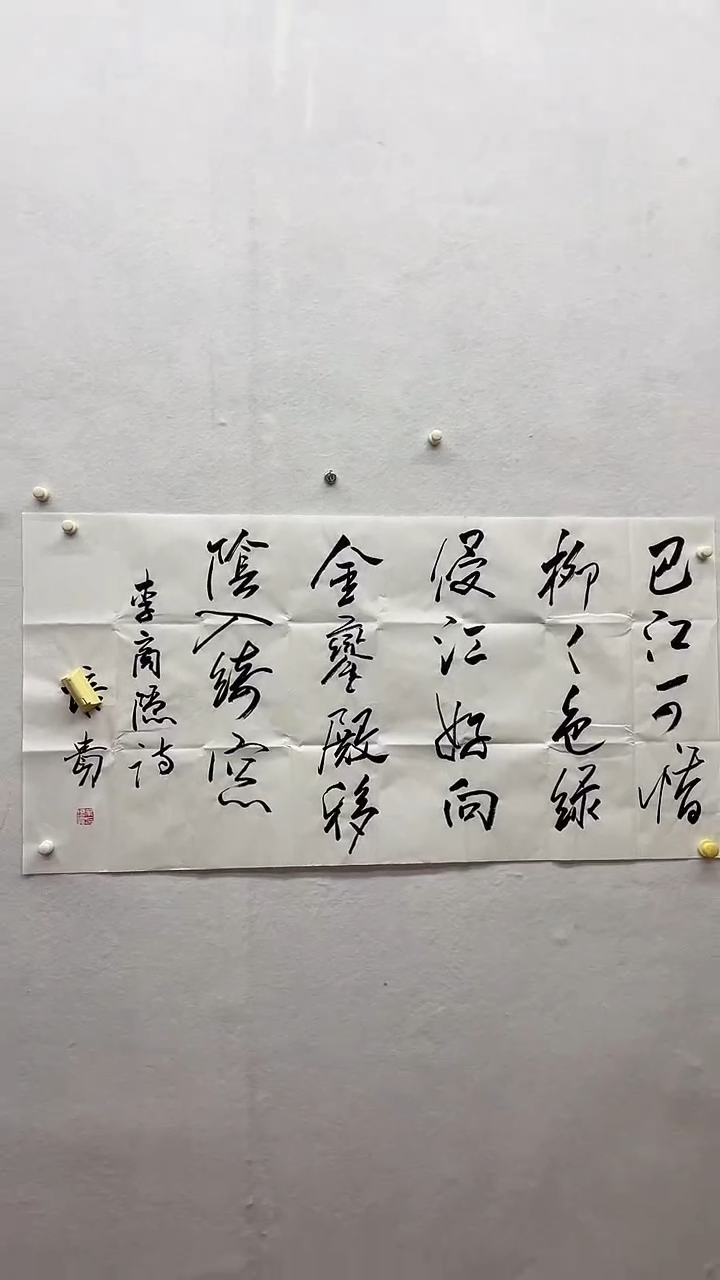 巴江可惜
柳〻色綠
侵江好向
金鑾殿移
陰入綺窓
李商隱詩